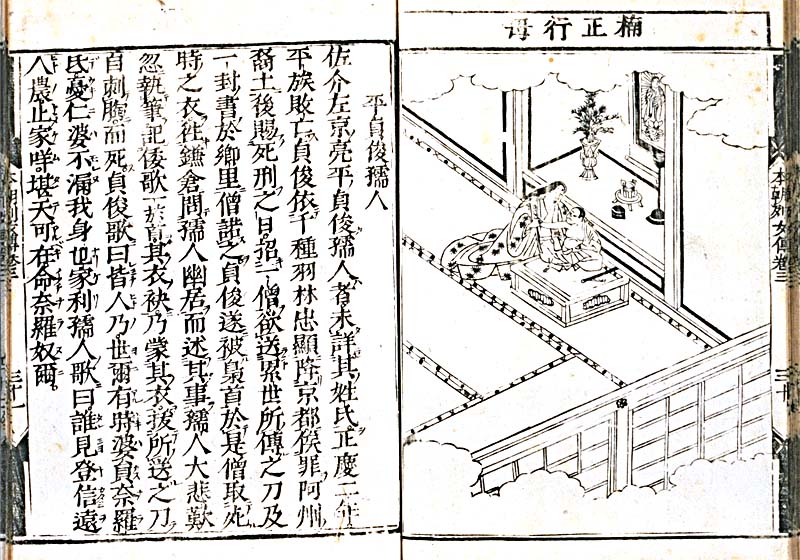 楠正行母
本朝列女傳卷三
三十
平貞俊孺人
佐介左京亮平貞俊孺人者未詳其姓氏正慶二年
平族敗亡貞俊依千種羽林忠顯降京都俟罪阿州
裔土後賜死刑之日招一僧欲送累世所傳之刀及
一封書於鄉里僧諾之貞俊遂被梟首於是僧取死
時之衣往鎌倉問孺人幽居而述其事孺人大悲歎
忽執筆記倭歌一首於其衣袂乃蒙其衣拔所送之刀
自刺胸而死貞俊歌曰皆人乃世爾有時婆員奈羅
氐憂仁婆不漏我身也家利孺人歌曰誰見登信遠
人農止家咩堪天可在命奈羅奴爾
本朝列女傳卷三
三十一